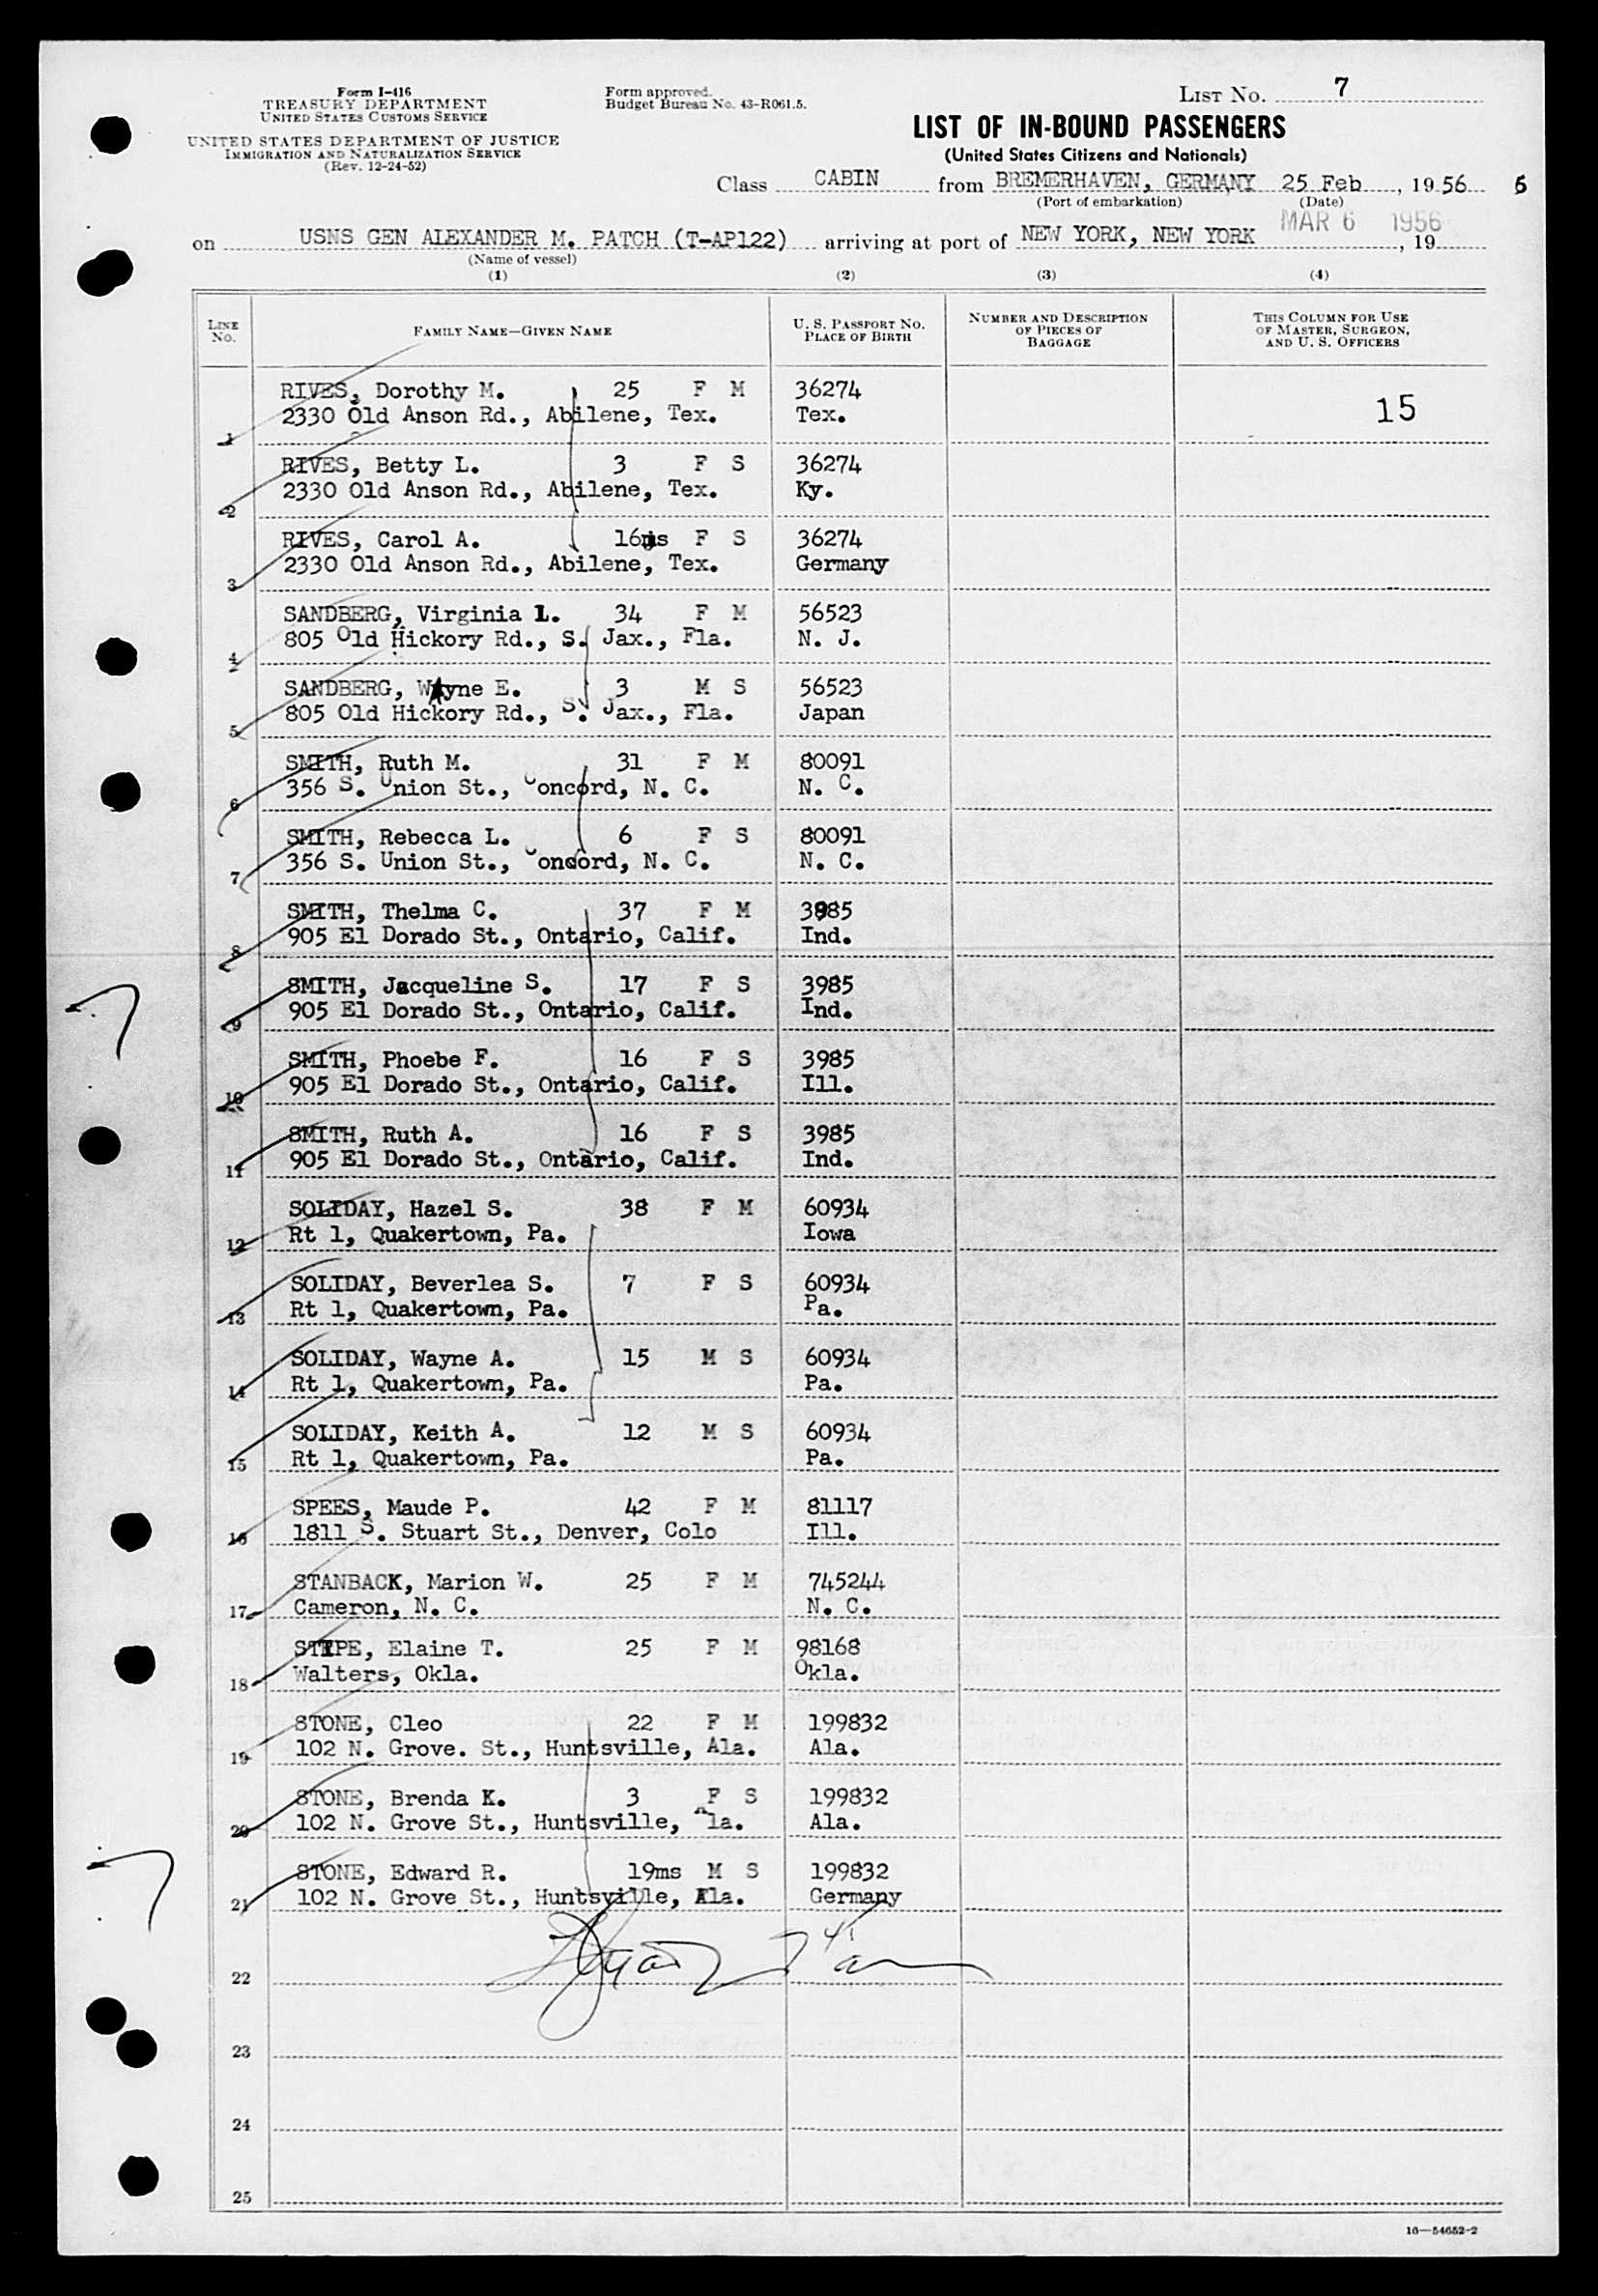 Form I-416
TREASURY DEPARTMENT
UNITED STATES CUSTOMS SERVICE
UNITED STATES DEPARTMENT OF JUSTICE
IMMIGRATION AND NATURALIZATION SERVICE
(Rev. 12-24-52)
Form approved.
Budget Bureau No. 43-R061.5.
LIST NO. 7
LIST OF IN-BOUND PASSENGERS
(United States Citizens and Nationals)
Class CABIN from BREMERHAVEN, GERMANY 25 Feb, 1956 6
(Port of embarkation) (Date)
on USNS GEN ALEXANDER M. PATCH (T-AP122) arriving at port of NEW YORK, NEW YORK MAR 6 1956, 19
(Name of vessel)
(1) (2) (3) (4)
LINE NO. FAMILY NAME—GIVEN NAME U. S. PASSPORT NO. PLACE OF BIRTH NUMBER AND DESCRIPTION OF PIECES OF BAGGAGE THIS COLUMN FOR USE OF MASTER, SURGEON, AND U. S. OFFICERS
RIVES, Dorothy M. 25 F M 36274
1 2330 Old Anson Rd., Abilene, Tex. Tex. 15
RIVES, Betty L. 3 F S 36274
2 2330 Old Anson Rd., Abilene, Tex. Ky.
RIVES, Carol A. 16ms F S 36274
3 2330 Old Anson Rd., Abilene, Tex. Germany
SANDBERG, Virginia L. 34 F M 56523
4 805 Old Hickory Rd., S. Jax., Fla. N. J.
SANDBERG, Wayne E. 3 M S 56523
5 805 Old Hickory Rd., S. Jax., Fla. Japan
SMITH, Ruth M. 31 F M 80091
6 356 S. Union St., Concord, N. C. N. C.
SMITH, Rebecca L. 6 F S 80091
7 356 S. Union St., Concord, N. C. N. C.
SMITH, Thelma C. 37 F M 3985
8 905 El Dorado St., Ontario, Calif. Ind.
SMITH, Jacqueline S. 17 F S 3985
9 905 El Dorado St., Ontario, Calif. Ind.
SMITH, Phoebe F. 16 F S 3985
10 905 El Dorado St., Ontario, Calif. Ill.
SMITH, Ruth A. 16 F S 3985
11 905 El Dorado St., Ontario, Calif. Ind.
SOLIDAY, Hazel S. 38 F M 60934
12 Rt 1, Quakertown, Pa. Iowa
SOLIDAY, Beverlea S. 7 F S 60934
13 Rt 1, Quakertown, Pa. Pa.
SOLIDAY, Wayne A. 15 M S 60934
14 Rt 1, Quakertown, Pa. Pa.
SOLIDAY, Keith A. 12 M S 60934
15 Rt 1, Quakertown, Pa. Pa.
SPEES, Maude P. 42 F M 81117
16 1811 S. Stuart St., Denver, Colo Ill.
STANBACK, Marion W. 25 F M 745244
17 Cameron, N. C. N. C.
STIPE, Elaine T. 25 F M 98168
18 Walters, Okla. Okla.
STONE, Cleo 22 F M 199832
19 102 N. Grove. St., Huntsville, Ala. Ala.
STONE, Brenda K. 3 F S 199832
20 102 N. Grove St., Huntsville, Ala. Ala.
STONE, Edward R. 19ms M S 199832
21 102 N. Grove St., Huntsville, Ala. Germany
22
23
24
25
16—54652-2